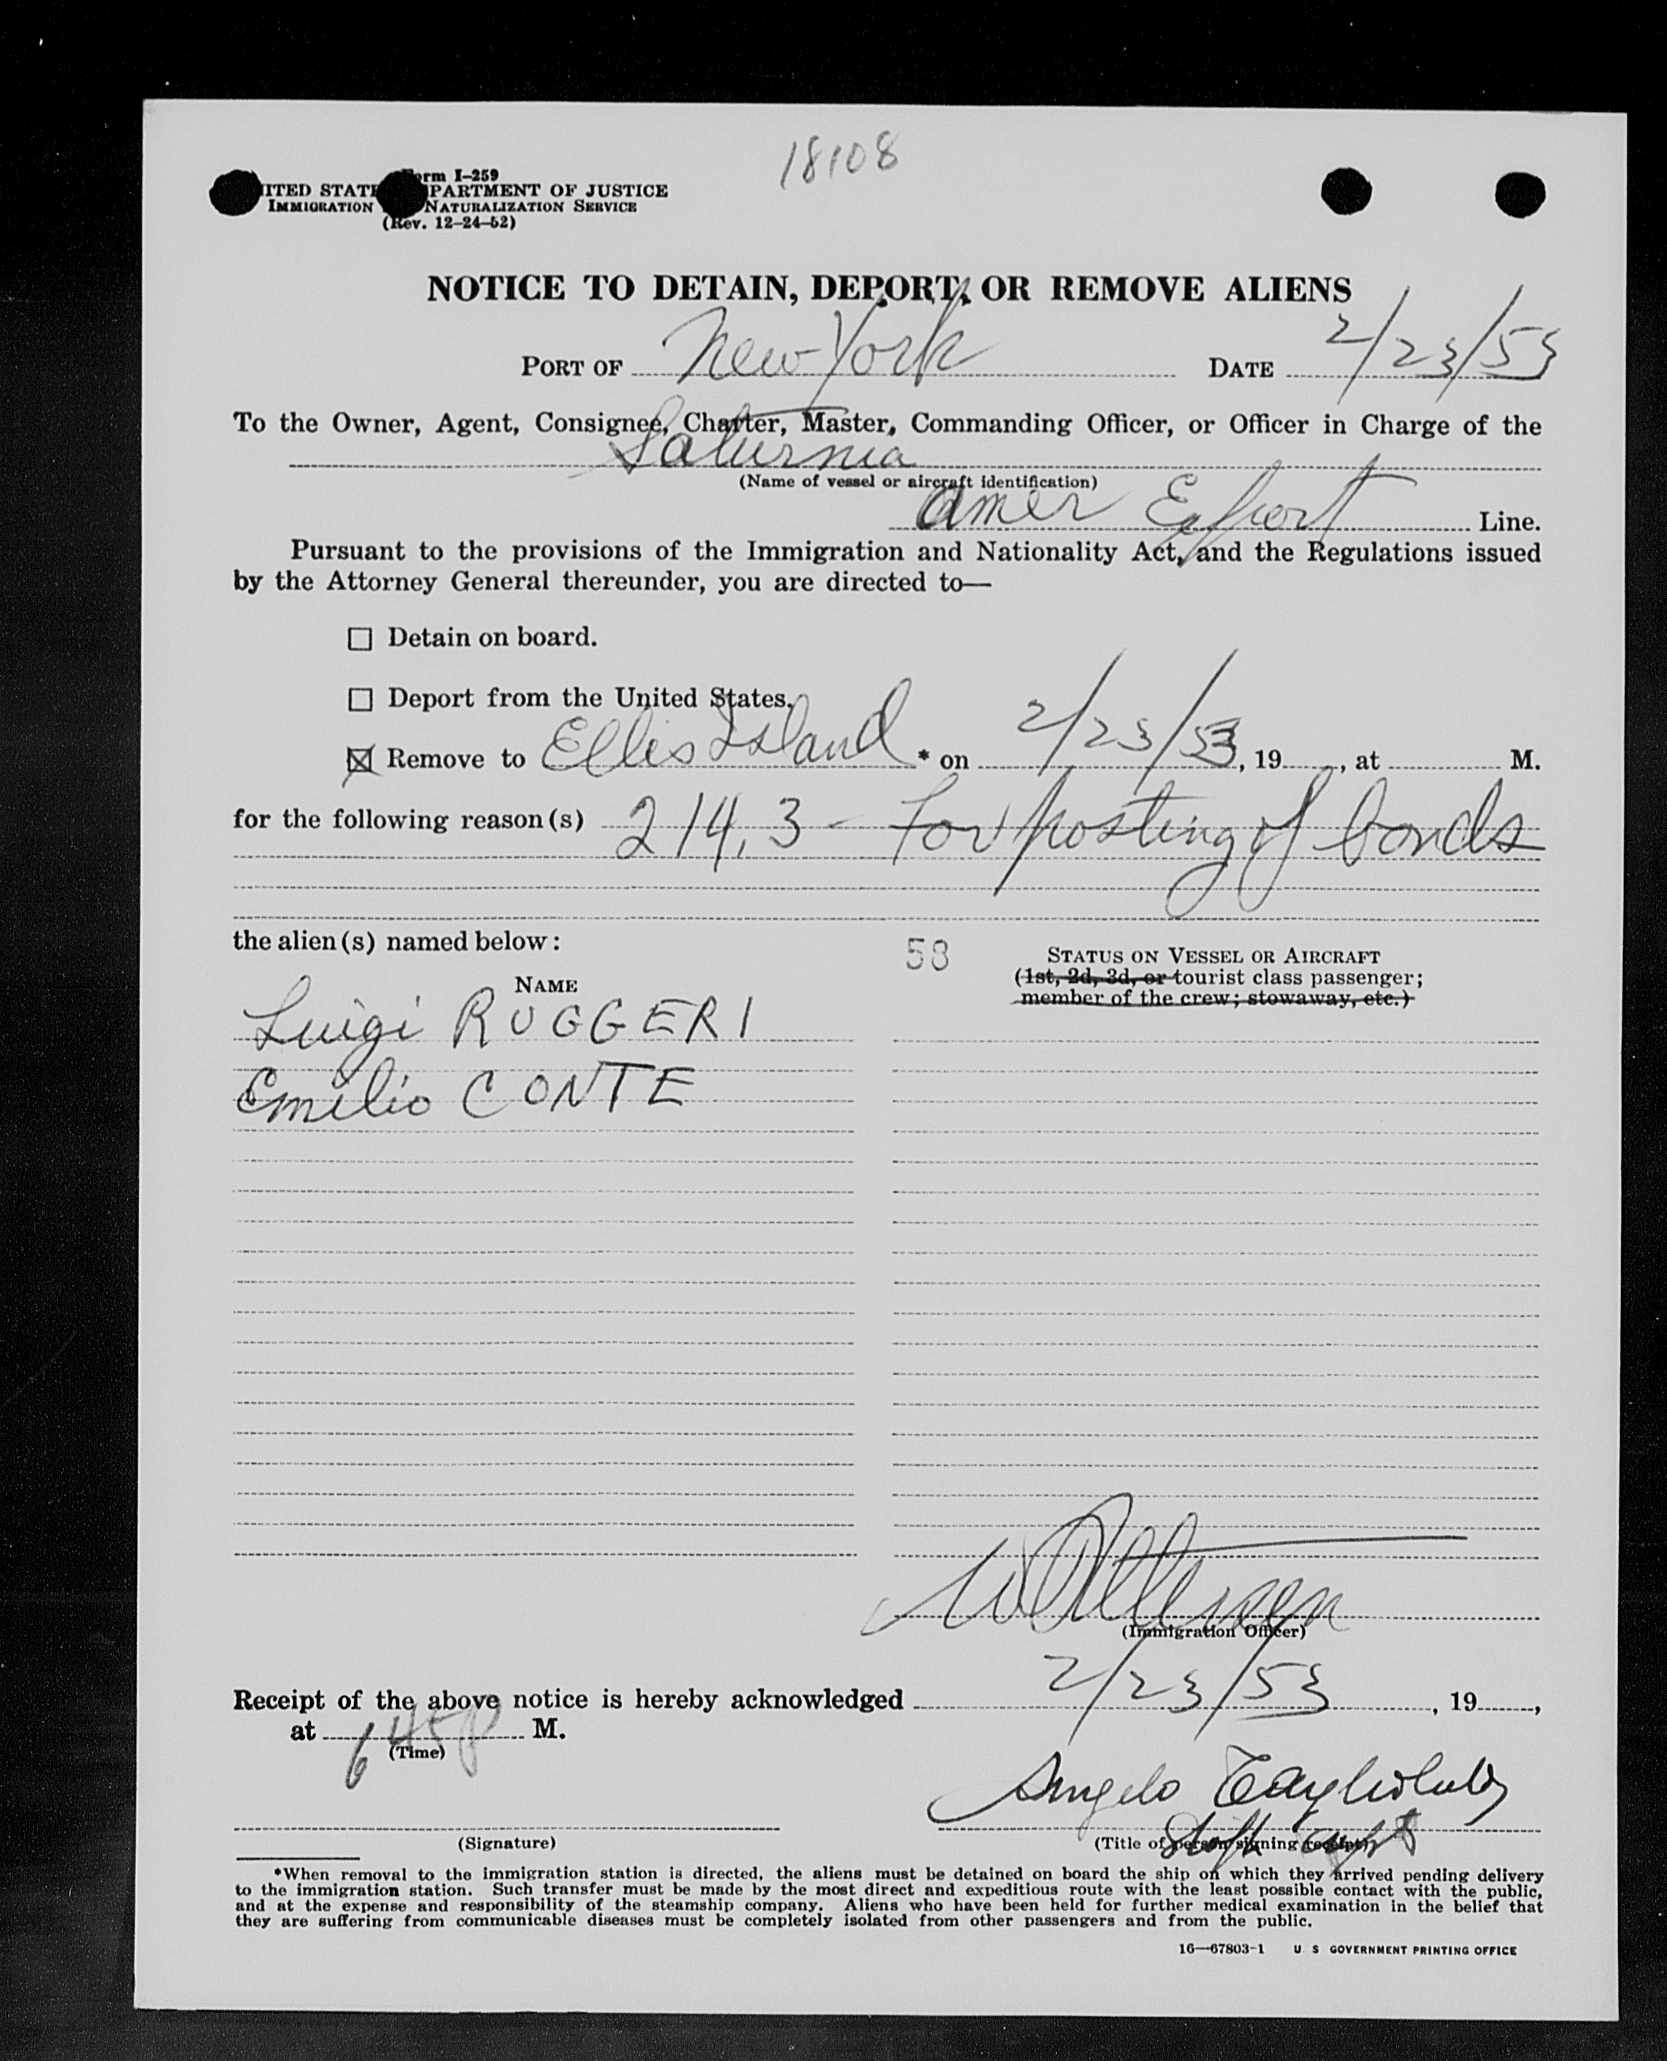 18108
Form I-259
UNITED STATES DEPARTMENT OF JUSTICE
IMMIGRATION NATURALIZATION SERVICE
(Rev. 12-24-52)
NOTICE TO DETAIN, DEPORT, OR REMOVE ALIENS
PORT OF New York DATE 2/23/53
To the Owner, Agent, Consignee, Charter, Master, Commanding Officer, or Officer in Charge of the
Saturnia
(Name of vessel or aircraft identification)
Amer Export Line.
Pursuant to the provisions of the Immigration and Nationality Act, and the Regulations issued
by the Attorney General thereunder, you are directed to—
☐ Detain on board.
☐ Deport from the United States.
☒ Remove to Ellis Island * on 2/23/53, 19, at M.
for the following reason(s) 214.3 - For posting of bonds
the alien(s) named below:
58
STATUS ON VESSEL OR AIRCRAFT
(1st, 2d, 3d, or tourist class passenger;
member of the crew; stowaway, etc.)
NAME
Luigi RUGGERI
Emilio CONTE
(Immigration Officer)
Receipt of the above notice is hereby acknowledged 2/23/53, 19,
at 645p M.
(Time)
Angelo
(Signature)
(Title of person signing receipt)
*When removal to the immigration station is directed, the aliens must be detained on board the ship on which they arrived pending delivery
to the immigration station. Such transfer must be made by the most direct and expeditious route with the least possible contact with the public,
and at the expense and responsibility of the steamship company. Aliens who have been held for further medical examination in the belief that
they are suffering from communicable diseases must be completely isolated from other passengers and from the public.
16—67803-1 U S GOVERNMENT PRINTING OFFICE